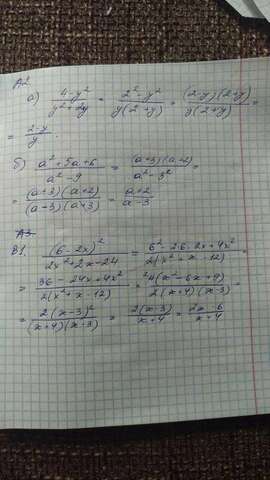 A2
а) (4-y²)/(y²+2y) = (2²-y²)/(y(2+y)) = ((2-y)(2+y))/(y(2+y)) =
= (2-y)/y.
б) (a²+5a+6)/(a²-9) = ((a+3)(a+2))/(a²-3²) =
= ((a+3)(a+2))/((a-3)(a+3)) = (a+2)/(a-3)
A3
B1. (6-2x)²/(2x²+2x-24) = (6²-2·6·2x+4x²)/(2(x²+x-12)) =
= (36-24x+4x²)/(2(x²+x-12)) = (4(x²-6x+9))/(2(x+4)(x-3)) =
= (2(x-3)²)/((x+4)(x-3)) = (2(x-3))/(x+4) = (2x-6)/(x+4)